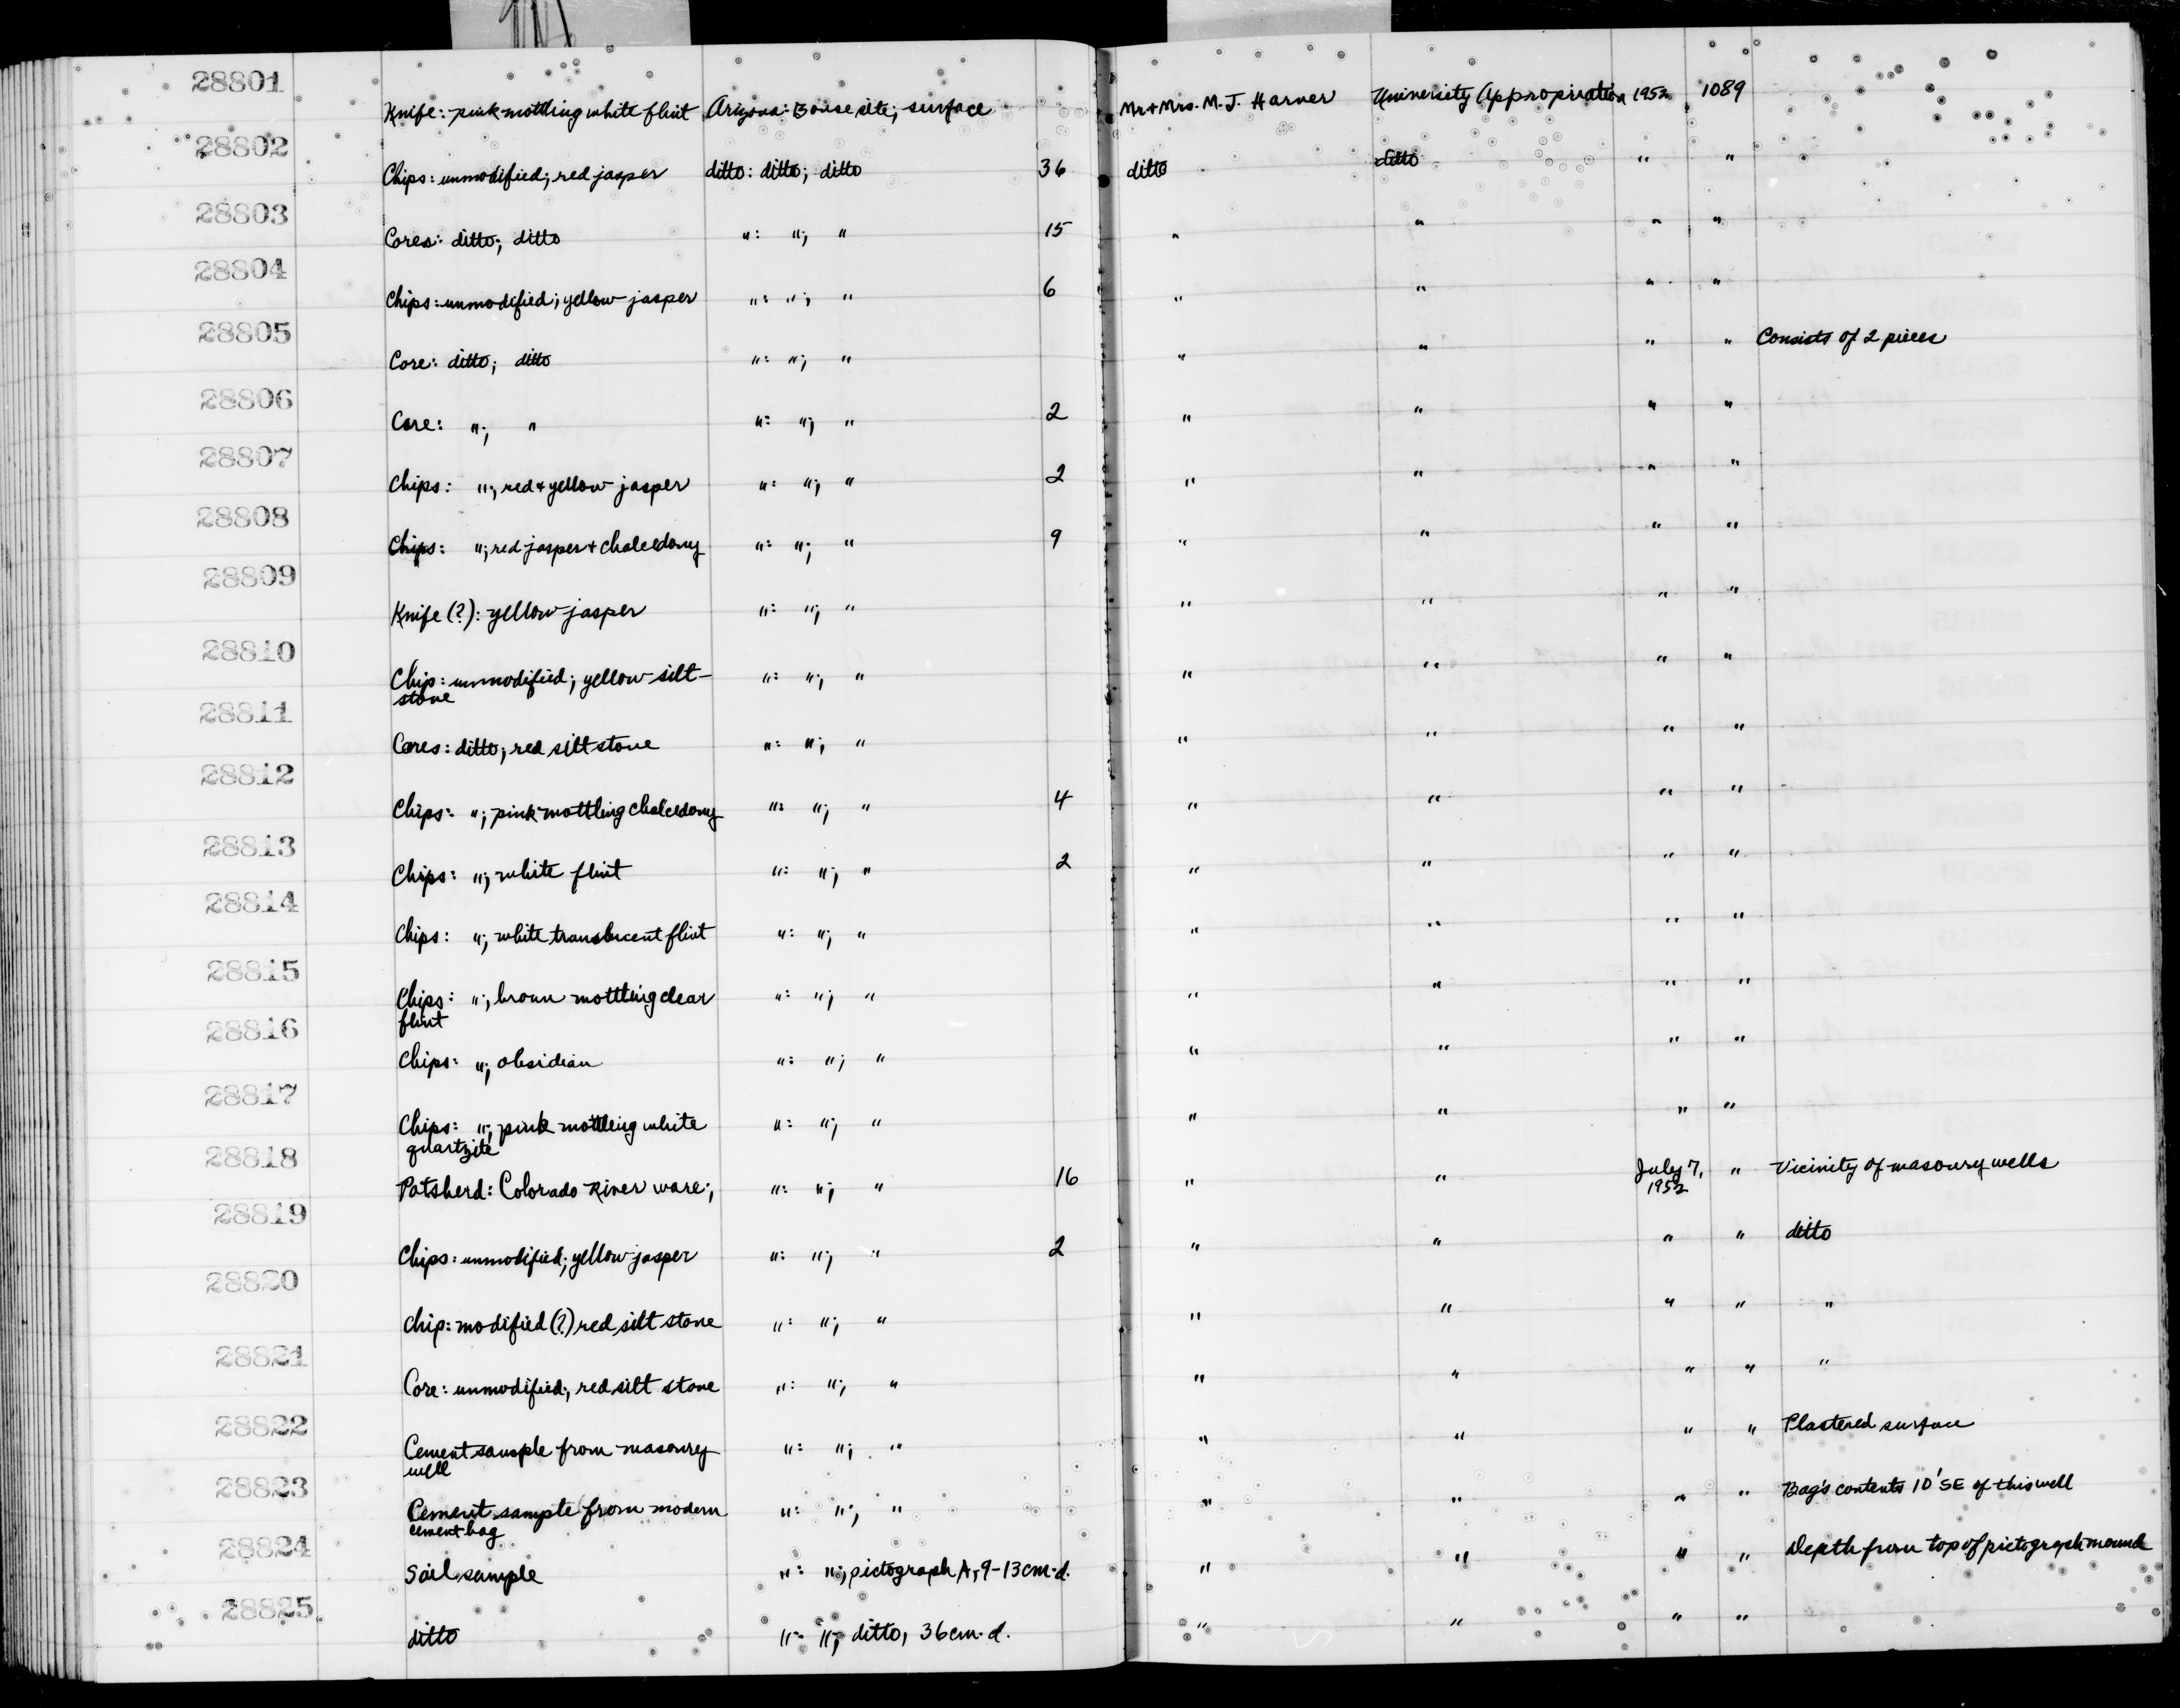 28801
Knife: pink mottling white flint Arizona: Bouse site; surface Mr + Mrs. M. J. Harner University Appropriation 1952 1089
28802
Chips: unmodified; red jasper ditto: ditto; ditto 36 ditto ditto " "
28803
Cores: ditto; ditto ": "; " 15 " " " "
28804
Chips: unmodified; yellow jasper ": "; " 6 " " " "
28805
Core: ditto; ditto ": "; " " " " " Consists of 2 pieces
28806
Core: "; " ": "; " 2 " " " "
28807
Chips: "; red + yellow jasper ": "; " 2 " " " "
28808
Chips: "; red jasper + chalcedony ": "; " 9 " " " "
28809
Knife (?): yellow jasper ": "; " " " " "
28810
Chip: unmodified; yellow silt-
stone ": "; " " " " "
28811
Cores: ditto; red silt stone ": "; " " " " "
28812
Chips: "; pink mottling chalcedony ": "; " 4 " " " "
28813
Chips: "; white flint ": "; " 2 " " " "
28814
Chips: "; white translucent flint ": "; " " " " "
28815
Chips: "; brown mottling clear
flint ": "; " " " " "
28816
Chips: "; obsidian ": "; " " " " "
28817
Chips: "; pink mottling white
quartzite ": "; " " " " "
28818
Potsherd: Colorado River ware; ": "; " 16 " " July 7, 1952 " Vicinity of masonry wells
28819
Chips: unmodified; yellow jasper ": "; " 2 " " " " ditto
28820
Chip: modified (?) red silt stone ": "; " " " " " "
28821
Core: unmodified; red silt stone ": "; " " " " " "
28822
Cement sample from masonry
well ": "; " " " " " Plastered surface
28823
Cement sample from modern
cement bag ": "; " " " " " Bag's contents 10' SE of this well
28824
Soil sample ": "; pictograph A, 9-13cm. d. " " " " Depth from top of pictograph mound
28825
ditto ": "; ditto, 36cm. d. " " " "